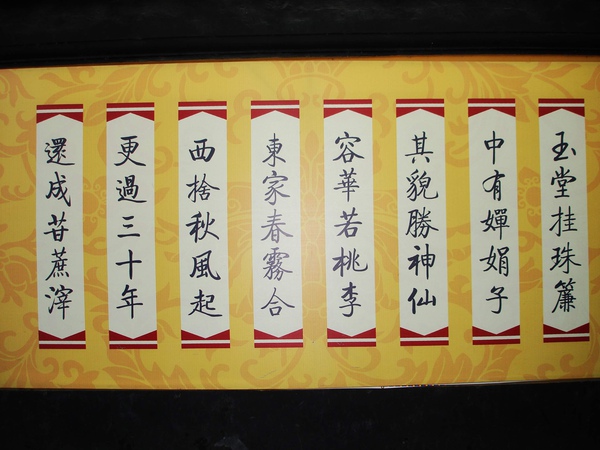 玉堂挂珠簾
中有嬋娟子
其貌勝神仙
容華若桃李
東家春霧合
西捨秋風起
更過三十年
還成苷蔗滓